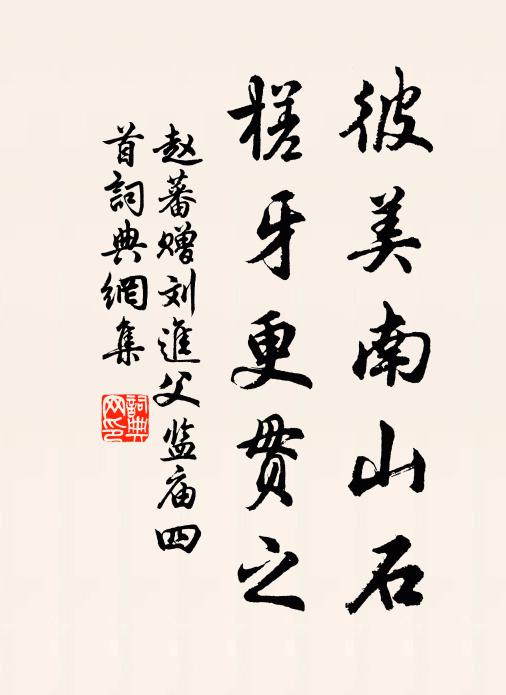 彼美南山石
槎牙更贯之
赵蕃赠刘進父监庙四
首詞典網集
詞典
网印